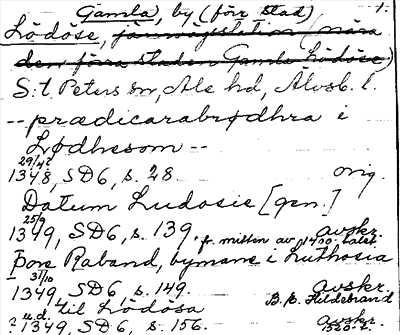 Gamla, by (förr stad) 1.
Lödöse, järnvägsstation (nära
den förra staden Gamla Lödöse)
S:t Peters sn, Ale hd, Älvsb. l.
-- prædicarabrødhra i
Lødhesom --
29/4
1348, SD6, s. 28. orig.
Datum Ludosie [gen.]
25/9
1349, SD6, s. 139. avskr.
fr. mitten av 1400-talet.
Þore Raband, bymane i Luthosia
31/10
1349, SD6, s. 149. Avskr.
B. E. Hildebrand
til Lödösa
u.d.
? 1349, SD6, s. 156. Avskr.